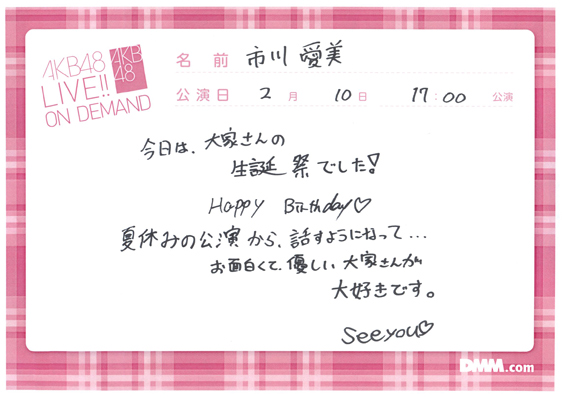 AKB48
LIVE!!
ON DEMAND
AKB
48
名前 市川 愛美
公演日 2月 10日 17:00 公演
今日は、大家さんの
生誕祭でした!
Happy Birthday♡
夏休みの公演から、話すようになって…
お面白くて、優しい大家さんが
大好きです。
See you♡
DMM.com